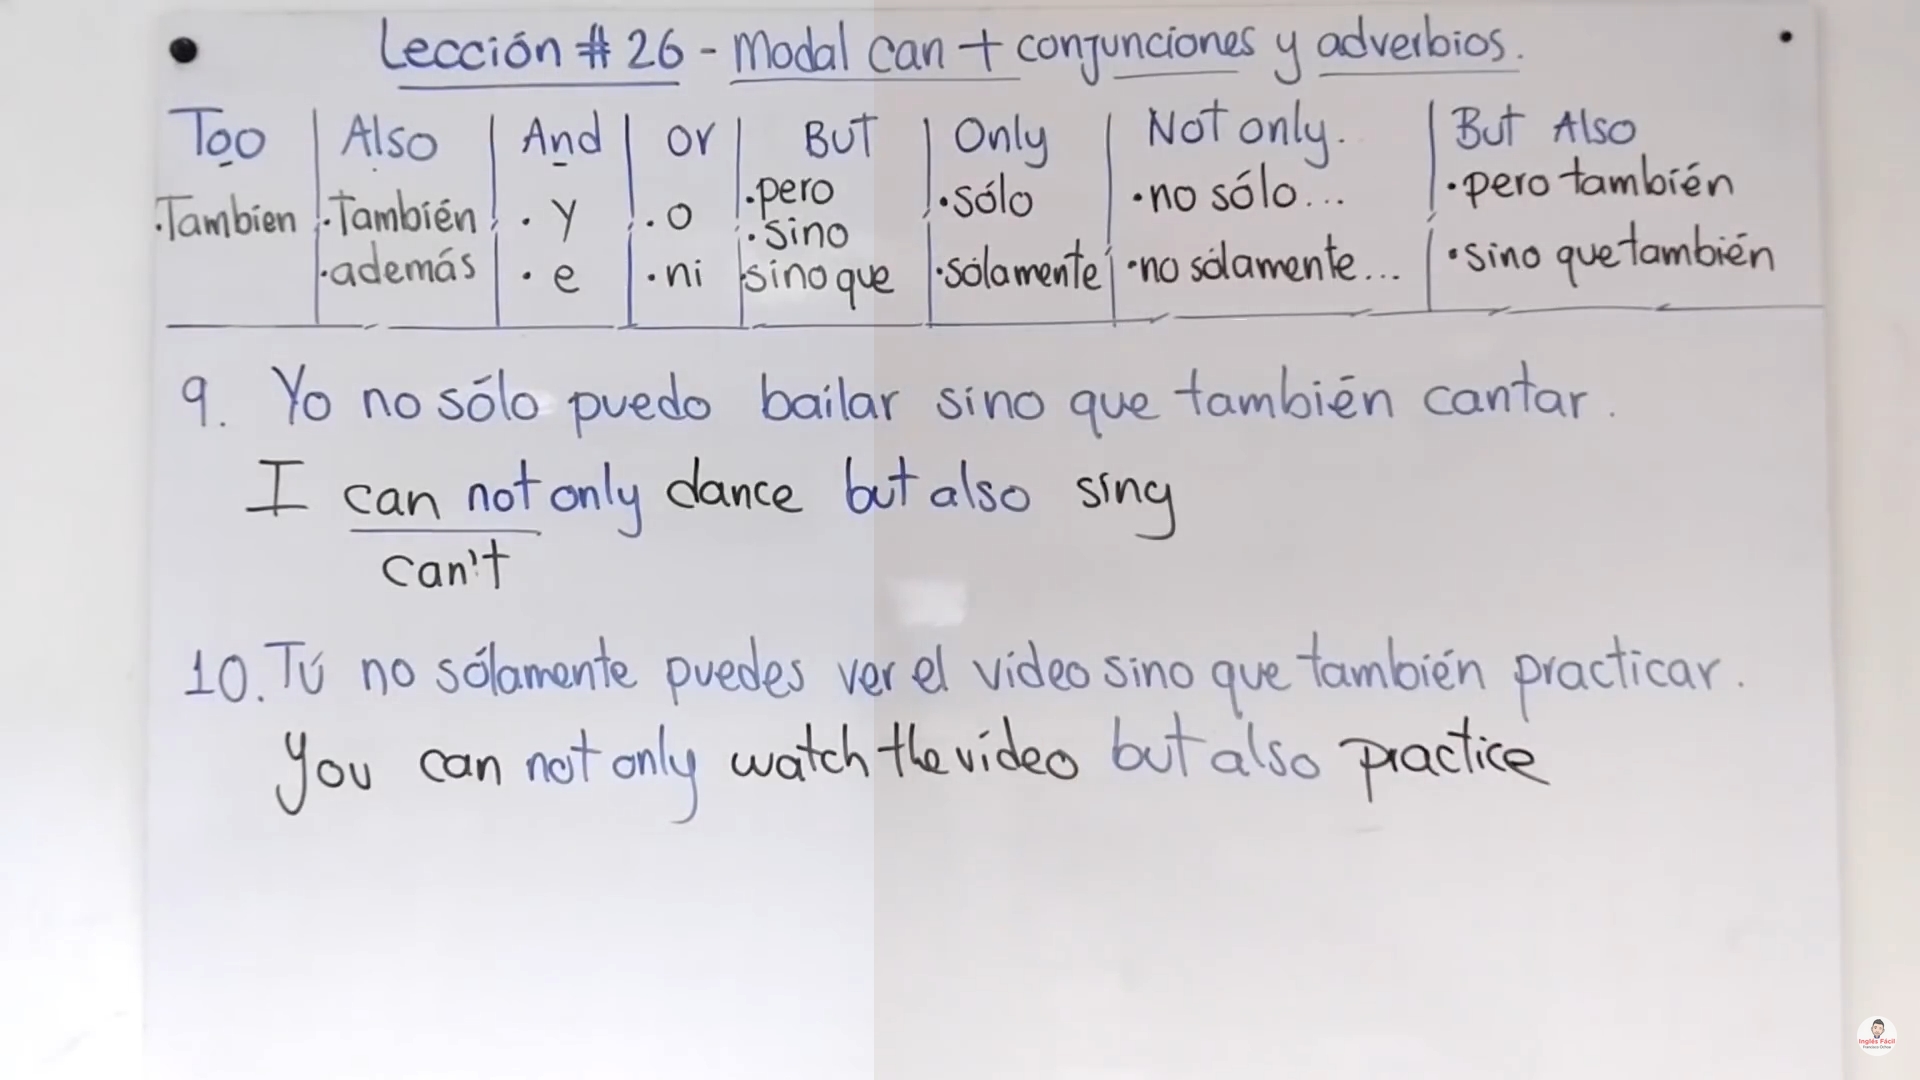 Lección # 26 - Modal can + conjunciones y adverbios.
Too | Also | And | or | But | Only | Not only. | But Also
.Tambien | .También | . y | . o | .pero | .sólo | .no sólo... | .pero también
.además | . e | . ni | .sino | .sólamente | .no sólamente... | .sino que también
sino que
9. Yo no sólo puedo bailar sino que también cantar.
I can not only dance but also sing
can't
10. Tú no sólamente puedes ver el video sino que también practicar.
You can not only watch the video but also practice
Inglés Fácil